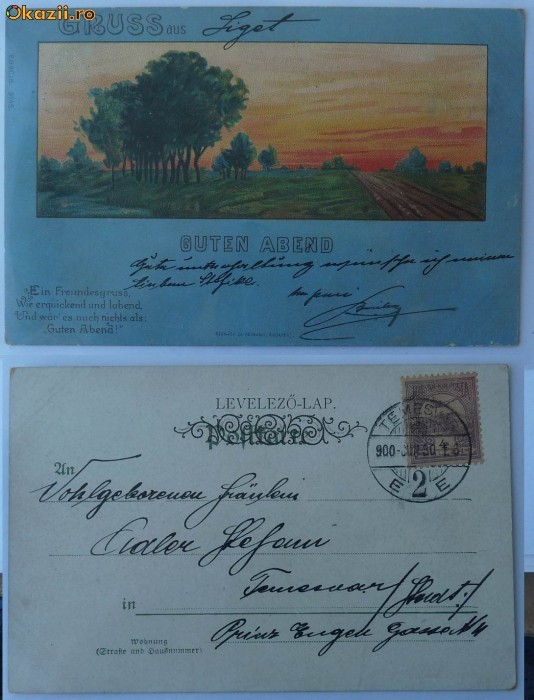 Okazii.ro
GRUSS aus Liget
GUTEN ABEND
Gute unterhaltung wünsche ich meinem
lieben
Ein Freundesgruss,
Wie erquickend und labend,
Und wär' es auch nichts als:
„Guten Abend!"
LEVELEZŐ-LAP.
Postkarte
An
Wohlgeborenen Fräulein
Adler Stefanie
Temesvar / Stadt /
in Prinz Eugen Gasse №
Wohnung
(Straße und Hausnummer)
TEMESVÁR
900 JUN 30
2
E E